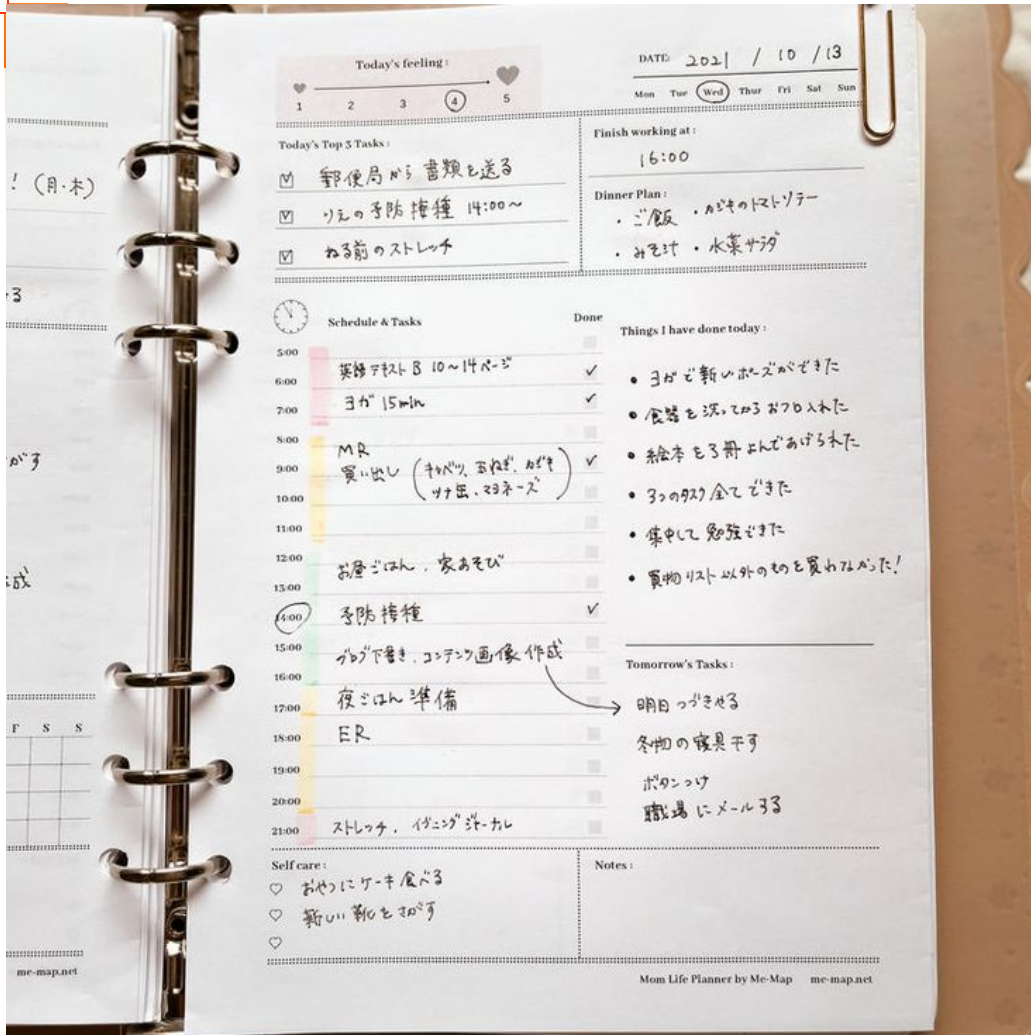 ！(月・木)
3
がす
成
F S S
me-map.net
Today's feeling :
1 2 3 4 5
DATE: 2021 / 10 / 13
Mon Tue Wed Thur Fri Sat Sun
Today's Top 3 Tasks :
郵便局から書類を送る
りえの予防接種 14:00〜
ねる前のストレッチ
Finish working at :
16:00
Dinner Plan :
・ご飯 ・カジキのトマトソテー
・みそ汁 ・水菜サラダ
Schedule & Tasks
Done
5:00
英語テキスト B 10〜14ページ
6:00
ヨガ 15min
7:00
8:00
MR
9:00
買い出し (キャベツ、玉ねぎ、カジキ
ツナ缶、マヨネーズ)
10:00
11:00
12:00
お昼ごはん、家あそび
13:00
14:00
予防接種
15:00
ブログ下書き、コンテンツ画像作成
16:00
夜ごはん準備
17:00
ER
18:00
19:00
20:00
21:00
ストレッチ、イブニングジャーナル
Things I have done today :
• ヨガで新しいポーズができた
• 食器を洗ってからおフロ入れた
• 絵本を3冊よんであげられた
• 3つのタスク全てできた
• 集中して勉強できた
• 買物リスト以外のものを買わなかった！
Tomorrow's Tasks :
明日つづきやる
冬物の寝具干す
ボタンつけ
職場にメールする
Self care :
おやつにケーキ食べる
新しい靴をさがす
Notes :
Mom Life Planner by Me-Map me-map.net